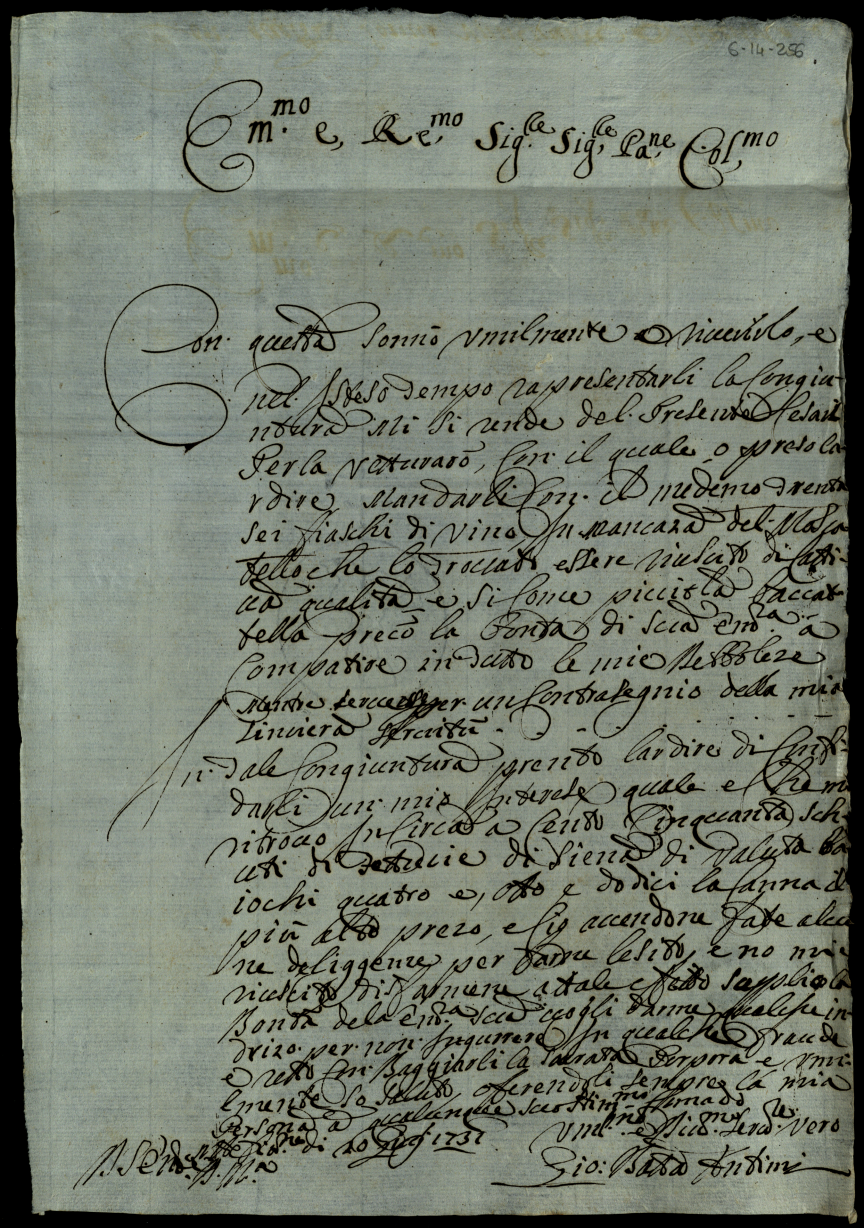 6-14-256
Em.mo e, Re.mo Sig.re Sig.re Pa.ne Col.mo
Con questa sonno vmilmente a riverirlo, e
nel Isteso dempo rapresentarli la Congiu-
ntura Mi si rende del Presente Cesari
Perla vetturaro, Con il quale o preso la
rdire Mandarli Con il medemo drenta
sei fiaschi di vino In Mancaza del Mosca
tello che lo Trovato essere riuscito di Catti-
va qualità e si Come piccila baccat-
tella preco la bonta di sua Em.za à
Compatire in duto le mie Debbleze
Mentre per un Contrasegnio della mia
sinciera servitu
In dale Congiuntura prento lardire di Confi-
darli un mio Interese quale e Che mi
ritrovo In Circa a Cento Cinquanta sch-
uti di Fettucie di Siena di valuta ba
iochi quatro e, otto e dodici la Canna il
più alto prezo, e Cio avendone fate alcu
ne deligenze per darne lesito, e no mi e
riuscito disfarmene attale efetto supplico la
Bontà dela Em.za sua vogli darme qualche in
drizo per non Ingurrere In qualche fraude
e resto Con Baggiarli la Sacrata Porpora e vmi-
lmente lo saluto oferendoli sempre la mia
Persona a qualunque
di 20 1731
Vmil.mo e Serv.re vero
Gio: Batta Antimi